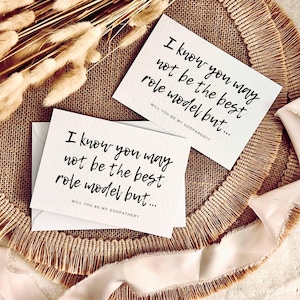 I know you may
not be the best
role model but...
WILL YOU BE MY GODPARENT?
I know you may
not be the best
role model but...
WILL YOU BE MY GODFATHER?